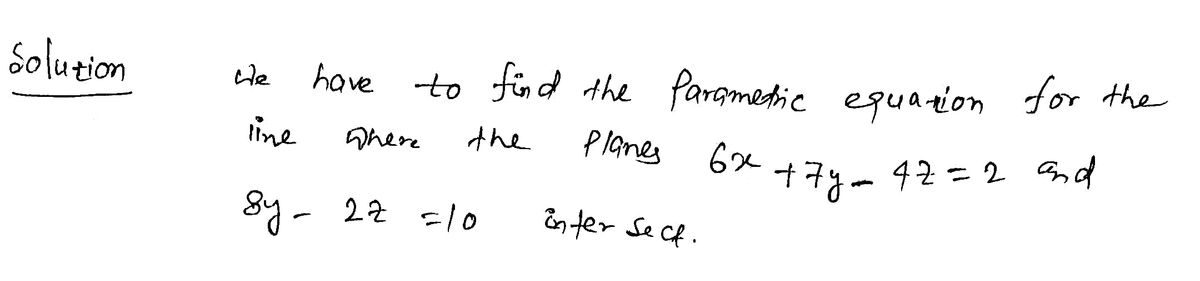 Solution We have to find the Parametric equation for the
line where the Planes 6x + 7y - 4z = 2 and
8y - 2z = 10 intersect.